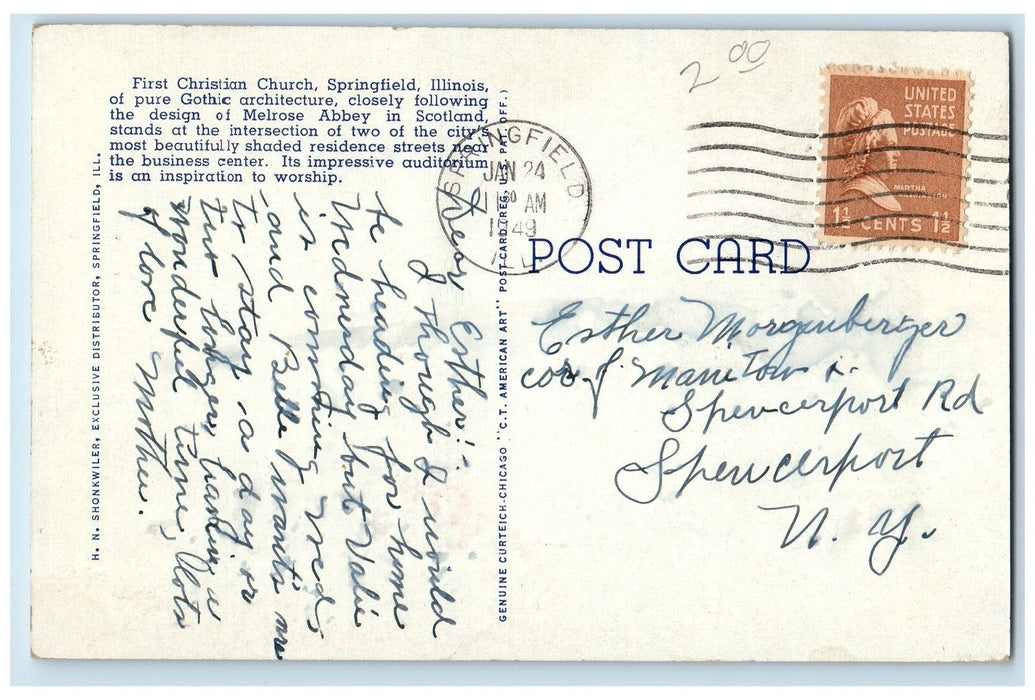 First Christian Church, Springfield, Illinois,
of pure Gothic architecture, closely following
the design of Melrose Abbey in Scotland,
stands at the intersection of two of the city's
most beautifully shaded residence streets near
the business center. Its impressive auditorium
is an inspiration to worship.
H. N. SHONKWILER, EXCLUSIVE DISTRIBUTOR, SPRINGFIELD, ILL.
Dear Esther:
I though I would
be heading for home
Wednesday but Valie
is coming Wed.
and Belle wants me
to stay a day or
two longer, having a
wonderful time, Lots
of love Mother.
GENUINE CURTEICH-CHICAGO "C.T. AMERICAN ART" POST CARD (REG. U.S. PAT. OFF.)
SPRINGFIELD
JAN 24
AM
1949
2 00
UNITED
STATES
POSTAGE
MARTHA
WASHINGTON
1½ CENTS 1½
POST CARD
Esther Morgenberger
cor of Manitou
Spencerport Rd
Spencerport
N. Y.